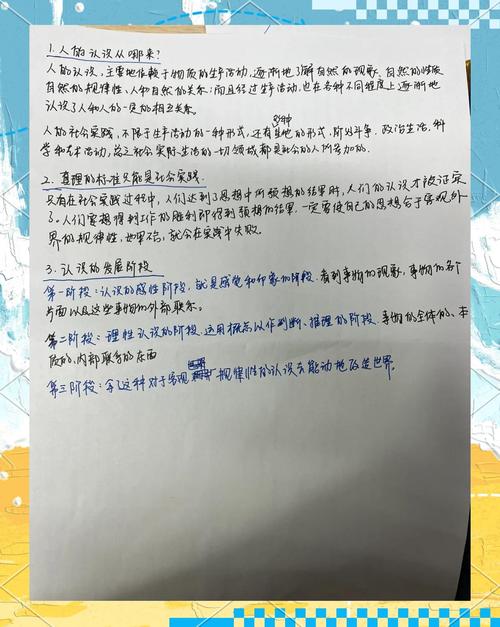 1. 人的认识从哪来?
人的认识,主要地依赖于物质的生产活动,逐渐地了解自然的现象、自然的性质
自然的规律性,人和自然的关系;而且经过生产活动,也在各种不同程度上逐渐地
认识了人和人的一定的相互关系。
人的社会实践,不限于生产活动的一种形式,还有多种其他的形式,阶级斗争,政治生活,科
学和艺术活动,总之社会实际生活的一切领域都是社会的人所参加的。
2. 真理的标准只能是社会实践
只有在社会实践过程中,人们达到了思想中所预想的结果时,人们的认识才被证实
了。人们要想得到工作的胜利即得到预想的结果,一定要使自己的思想合于客观外
界的规律性,如果不合,就会在实践中失败。
3. 认识的发展阶段
第一阶段:认识的感性阶段,就是感觉和印象的阶段。看到事物的现象,事物的各个
片面以及这些事物的外部联系。
第二阶段:理性认识的阶段,运用概念以作判断、推理的阶段。事物的全体的、本
质的、内部联系的东西
第三阶段:拿了这种对于客观世界规律性的认识去能动地改造世界。